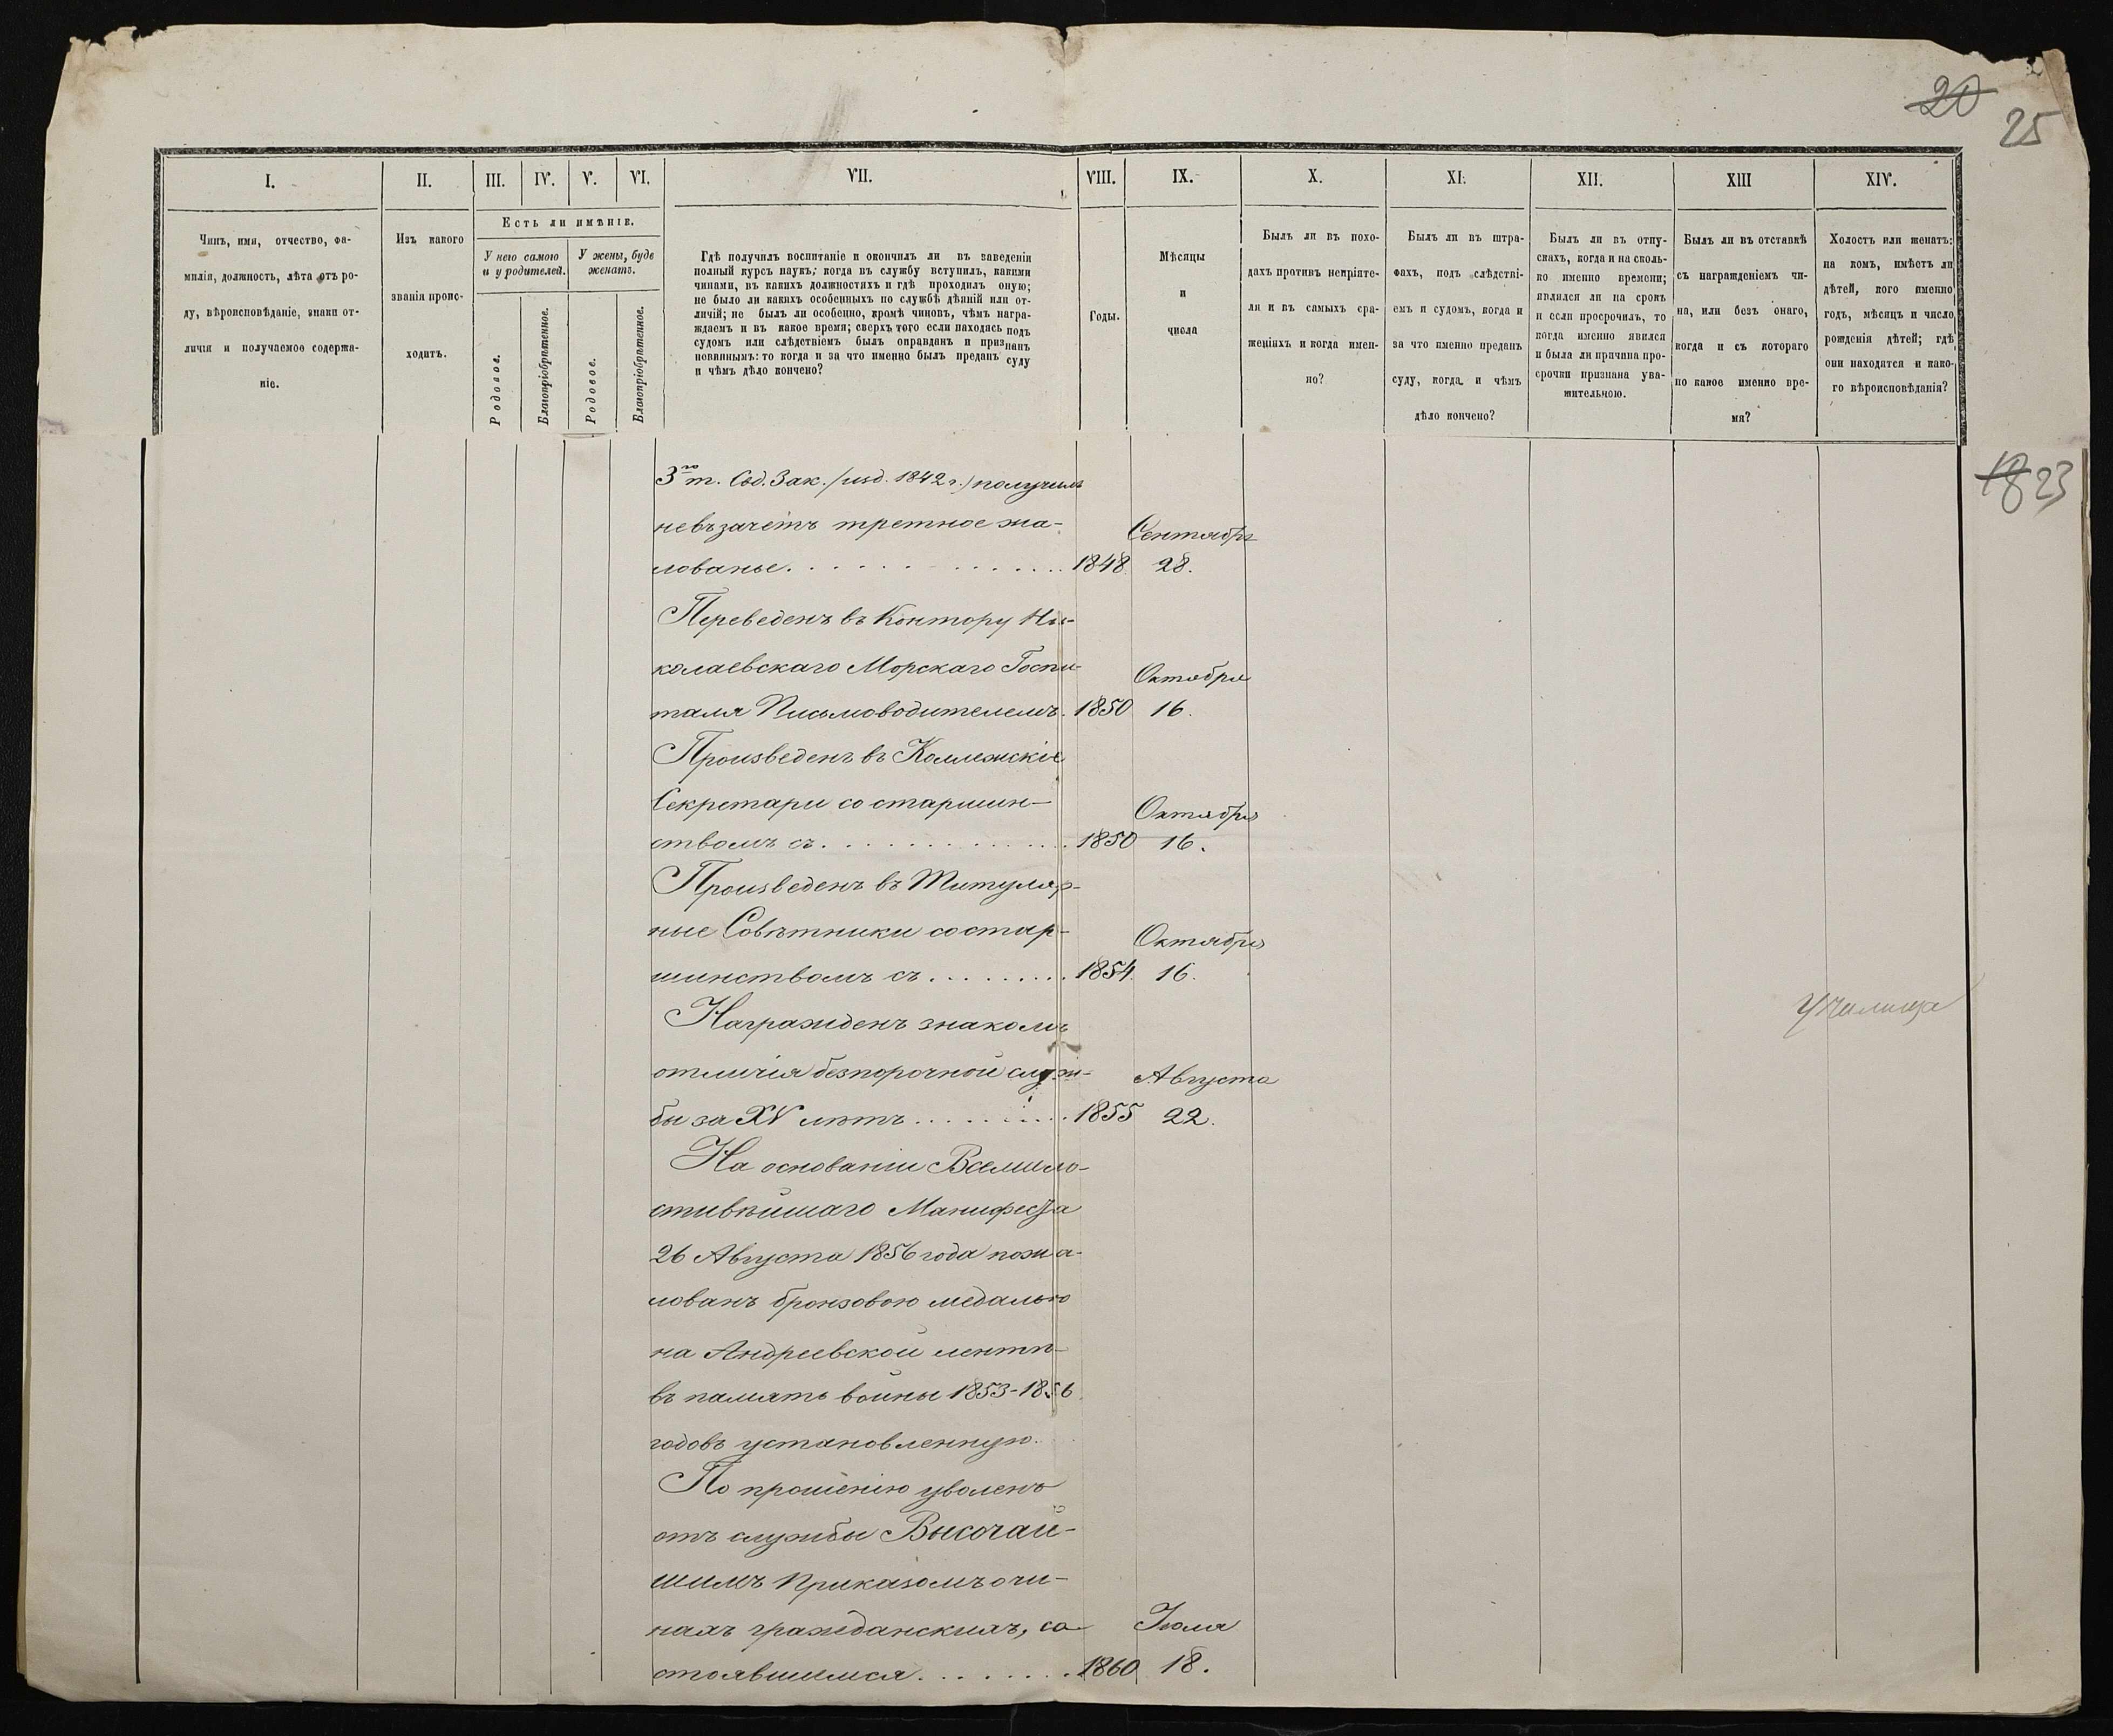 20
25
I.
II.
III.
IV.
V.
VI.
VII.
VIII.
IX.
X.
XI.
XII.
XIII
XIV.
Чинъ, имя, отчество, фа-
милія, должность, лѣта отъ ро-
ду, вѣроисповѣданіе, знаки от-
личія и получаемое содержа-
ніе.
Изъ какого
званія проис-
ходитъ.
Есть ли имѣніе.
У него самого
и у родителей.
У жены, буде
женатъ.
Родовое.
Благопріобрѣтенное.
Родовое.
Благопріобрѣтенное.
Гдѣ получилъ воспитаніе и окончилъ ли въ заведеніи
полный курсъ наукъ; когда въ службу вступилъ, какими
чинами, въ какихъ должностяхъ и гдѣ проходилъ оную;
не было ли какихъ особенныхъ по службѣ дѣяній или от-
личій; не былъ ли особенно, кромѣ чиновъ, чѣмъ награ-
ждаемъ и въ какое время; сверхъ того если находясь подъ
судомъ или слѣдствіемъ былъ оправданъ и признанъ
невиннымъ: то когда и за что именно былъ преданъ суду
и чѣмъ дѣло кончено?
Годы.
Мѣсяцы
и
числа
Былъ ли въ похо-
дахъ противъ непріяте-
ля и въ самыхъ сра-
женіяхъ и когда имен-
но?
Былъ ли въ штра-
фахъ, подъ слѣдстві-
емъ и судомъ, когда и
за что именно преданъ
суду, когда и чѣмъ
дѣло кончено?
Былъ ли въ отпу-
скахъ, когда и на сколь-
ко именно времени;
явился ли на срокъ
и если просрочилъ, то
когда именно явился
и была ли причина про-
срочки признана ува-
жительною.
Былъ ли въ отставкѣ
съ награжденіемъ чи-
на, или безъ онаго,
когда и съ котораго
по какое именно вре-
мя?
Холостъ или женатъ;
на комъ, имѣетъ ли
дѣтей, кого именно
годъ, мѣсяцъ и число
рожденія дѣтей; гдѣ
они находятся и како-
го вѣроисповѣданія?
18 23
3го т. Свд. Зак. (изд. 1842 г.) получилъ
невъзачетъ третное жа-
лованье. 1848 Сентября 28.
Переведенъ въ Контору Ни-
колаевскаго Морскаго Госпи-
таля Письмоводителемъ. 1850 Октября 16.
Произведенъ въ Коллежскіе
Секретари со старшин-
ствомъ съ. 1850 Октября 16.
Произведенъ въ Титуляр-
ные Совѣтники со стар-
шинствомъ съ. 1854. Октября 16.
Награжденъ знакомъ
отличія безпорочной служ-
бы за XV лѣтъ. 1855 Августа 22.
На основаніи Всемило-
стивѣйшаго Манифеста
26 Августа 1856 года пожа-
лованъ бронзовою медалью
на Андреевской лентѣ
въ память войны 1853-1856
годовъ установленную.
По прошенію уволенъ
отъ службы Высочай-
шимъ Приказомъ о чи-
нахъ гражданскихъ, со-
стоявшимся. 1860 Іюля 18.
Училища